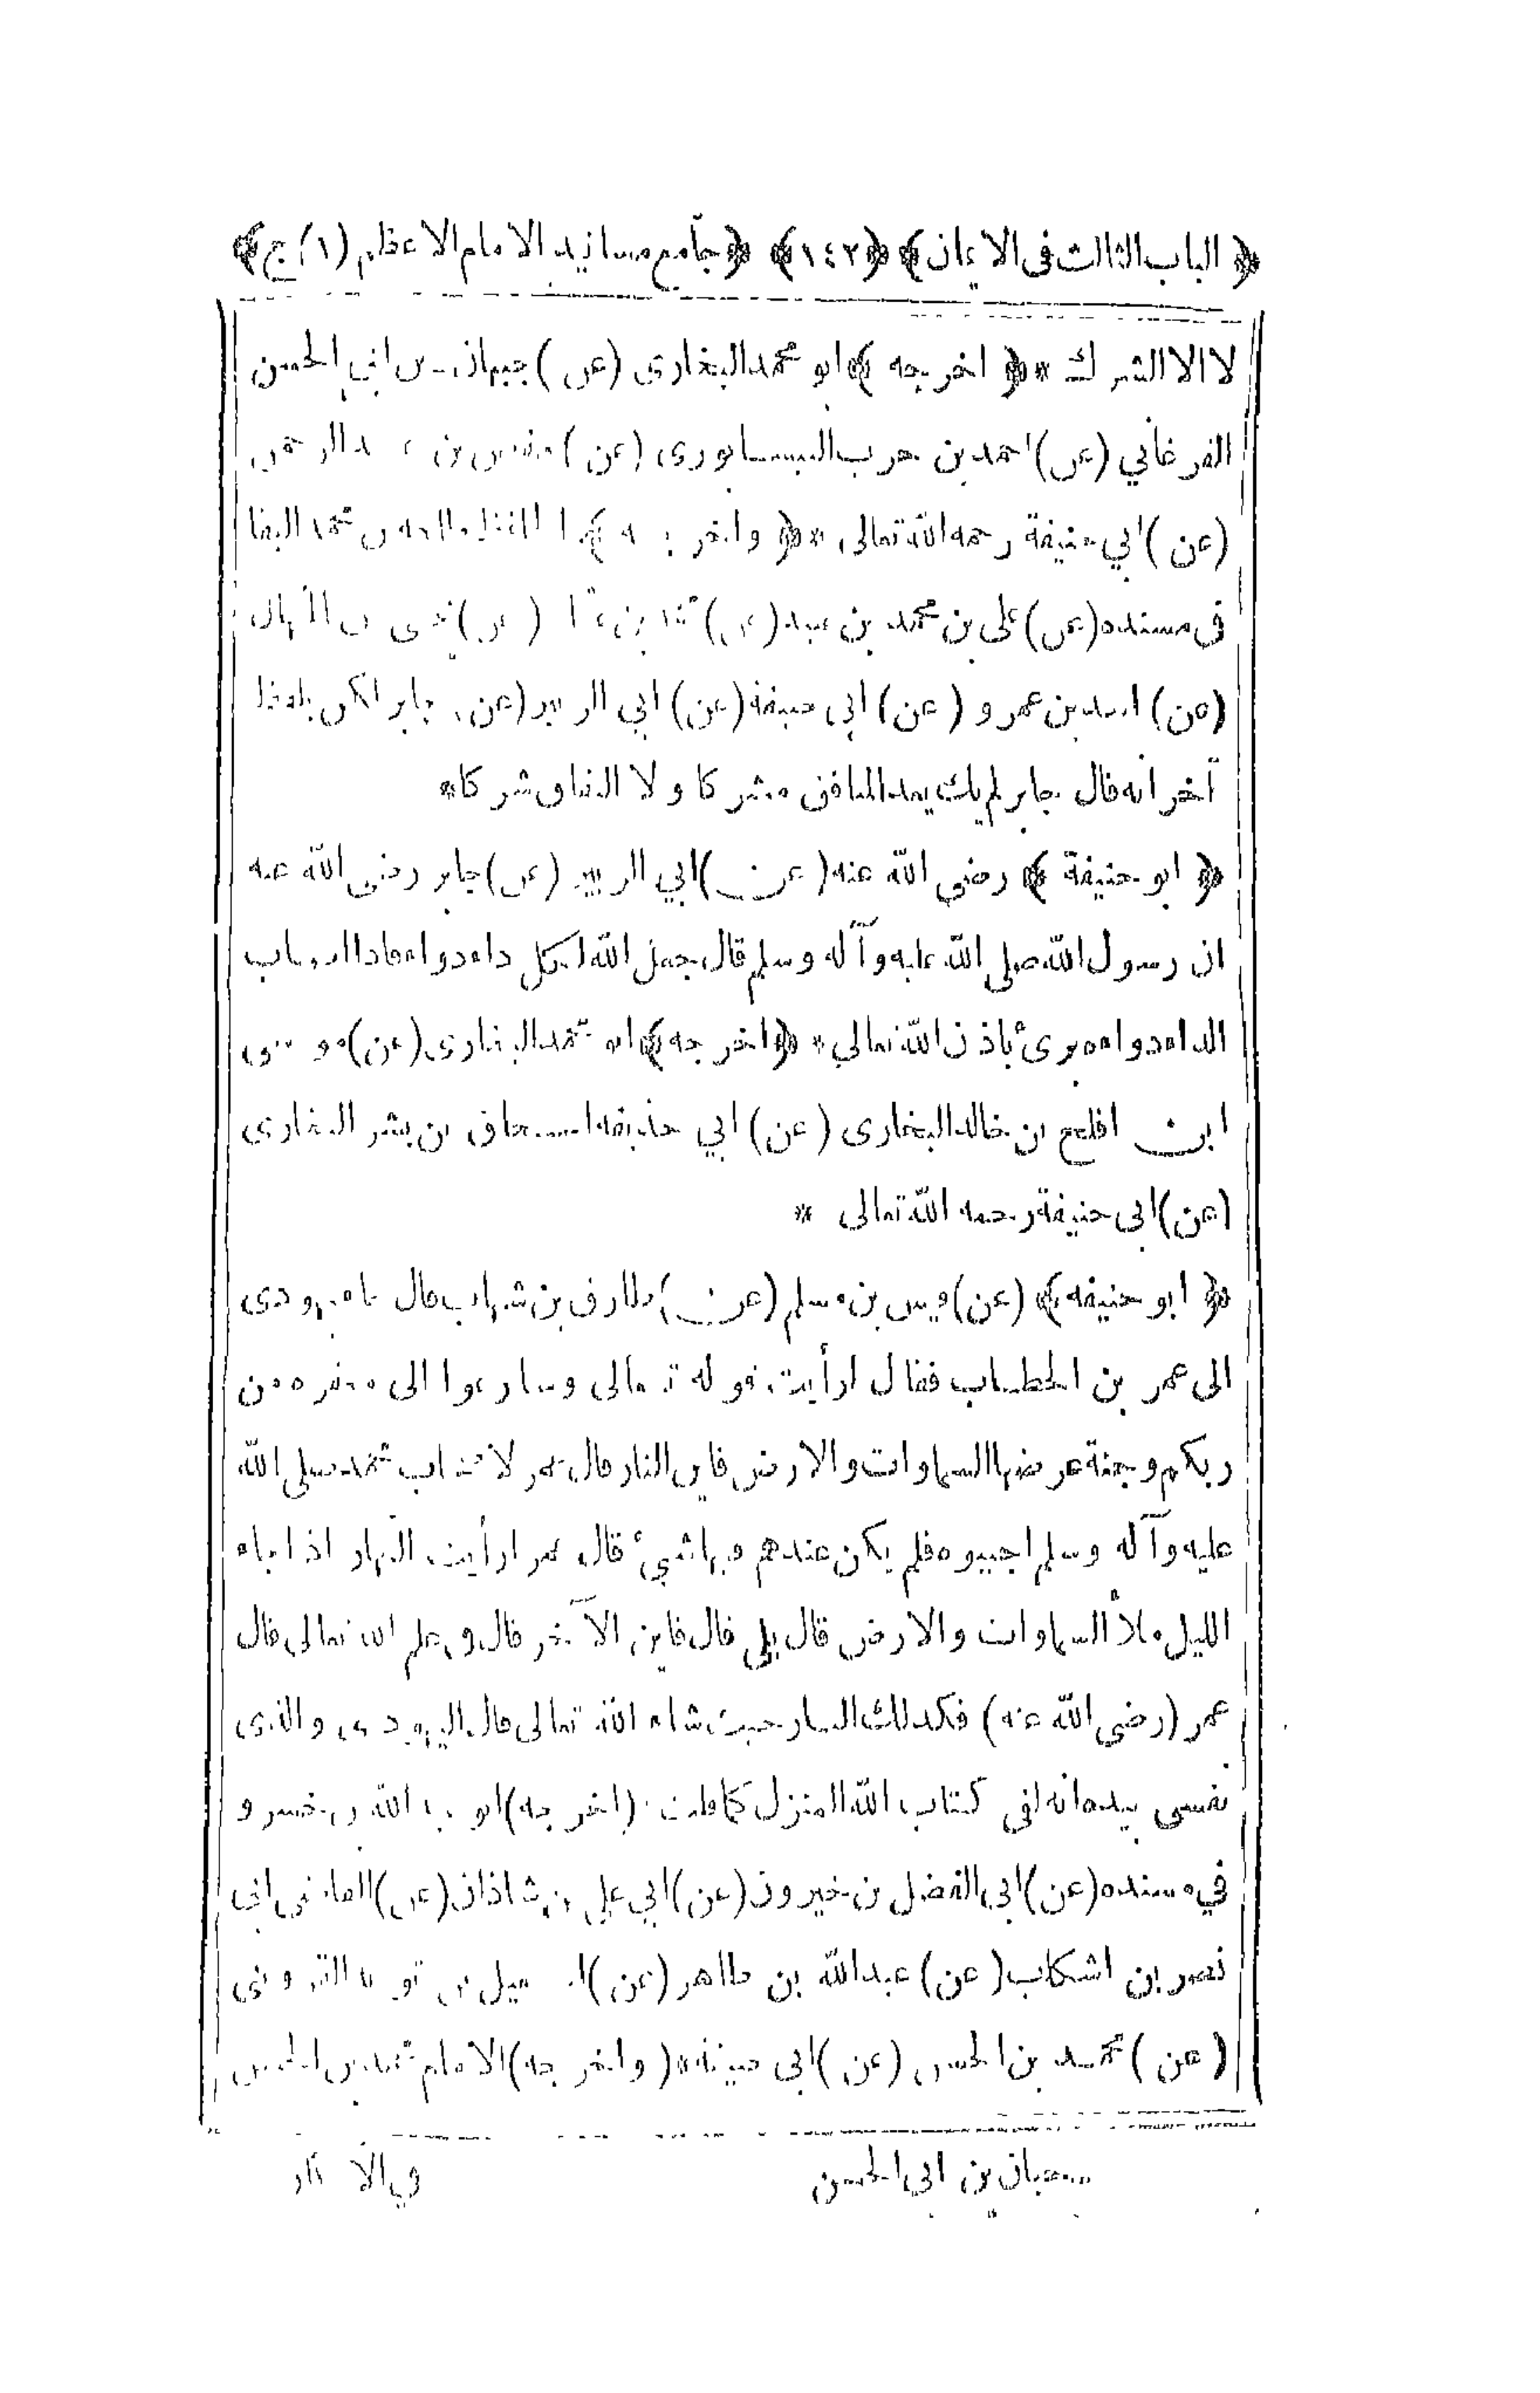 ﴿ الباب الثالث فى الايمان ﴾ ﴿١٤٢﴾ ﴿ جامع مسانيد الامام الاعظم (١) ج ﴾
لا الا الشرك * ﴿ اخرجه ﴾ ابو محمد البخارى (عن) ابي الحسن
الفرغاني (عن) احمد بن حرب النيسابورى (عن) بن عبد الرحمن
(عن) ابي حنيفة رحمه الله تعالى * ﴿ واخرجه ﴾ محمد
فى مسنده (عن) على بن محمد بن عبيد (عن) (عن)
(عن) اسد بن عمرو (عن) ابى حنيفة (عن) ابي الزبير (عن) جابر لكن بلفظ
آخر انه قال جابر لم يك يعد المنافق مشركا ولا النفاق شركا *
﴿ ابو حنيفة ﴾ رضى الله عنه (عن) ابي الزبير (عن) جابر رضى الله عنه
ان رسول الله صلى الله عليه وآله وسلم قال جعل الله لكل داء دواء فاذا اصاب
الداء دواءه برئ باذن الله تعالى * ﴿ اخرجه ﴾ ابو محمد البخارى (عن)
ابن افلح بن خالد البخارى (عن) ابي حذيفة اسحاق بن بشر البخارى
(عن) ابى حنيفة رحمه الله تعالى *
﴿ ابو حنيفة ﴾ (عن) قيس بن مسلم (عن) طارق بن شهاب قال جاء يهودى
الى عمر بن الخطاب فقال ارأيت قوله تعالى وسارعوا الى مغفرة من
ربكم وجنة عرضها السماوات والارض فاين النار قال عمر لاصحاب محمد صلى الله
عليه وآله وسلم اجيبوه فلم يكن عندهم فيها شئ قال عمر ارأيت النهار اذا جاء
الليل ملأ السماوات والارض قال بلى قال فاين الآخر قال فى علم الله تعالى قال
عمر (رضى الله عنه) فكذلك النار حيث شاء الله تعالى قال اليهودى والذى
نفسى بيده انه لفى كتاب الله المنزل كما قلت (اخرجه) ابو عبد الله بن خسرو
في مسنده (عن) ابى الفضل بن خيرون (عن) ابي على بن شاذان (عن) القاضى ابى
نصر بن اشكاب (عن) عبد الله بن طاهر (عن)
(عن) محمد بن الحسن (عن) ابى حنيفة * (واخرجه) الامام محمد بن الحسن
بن ابى الحسن
في الآثار